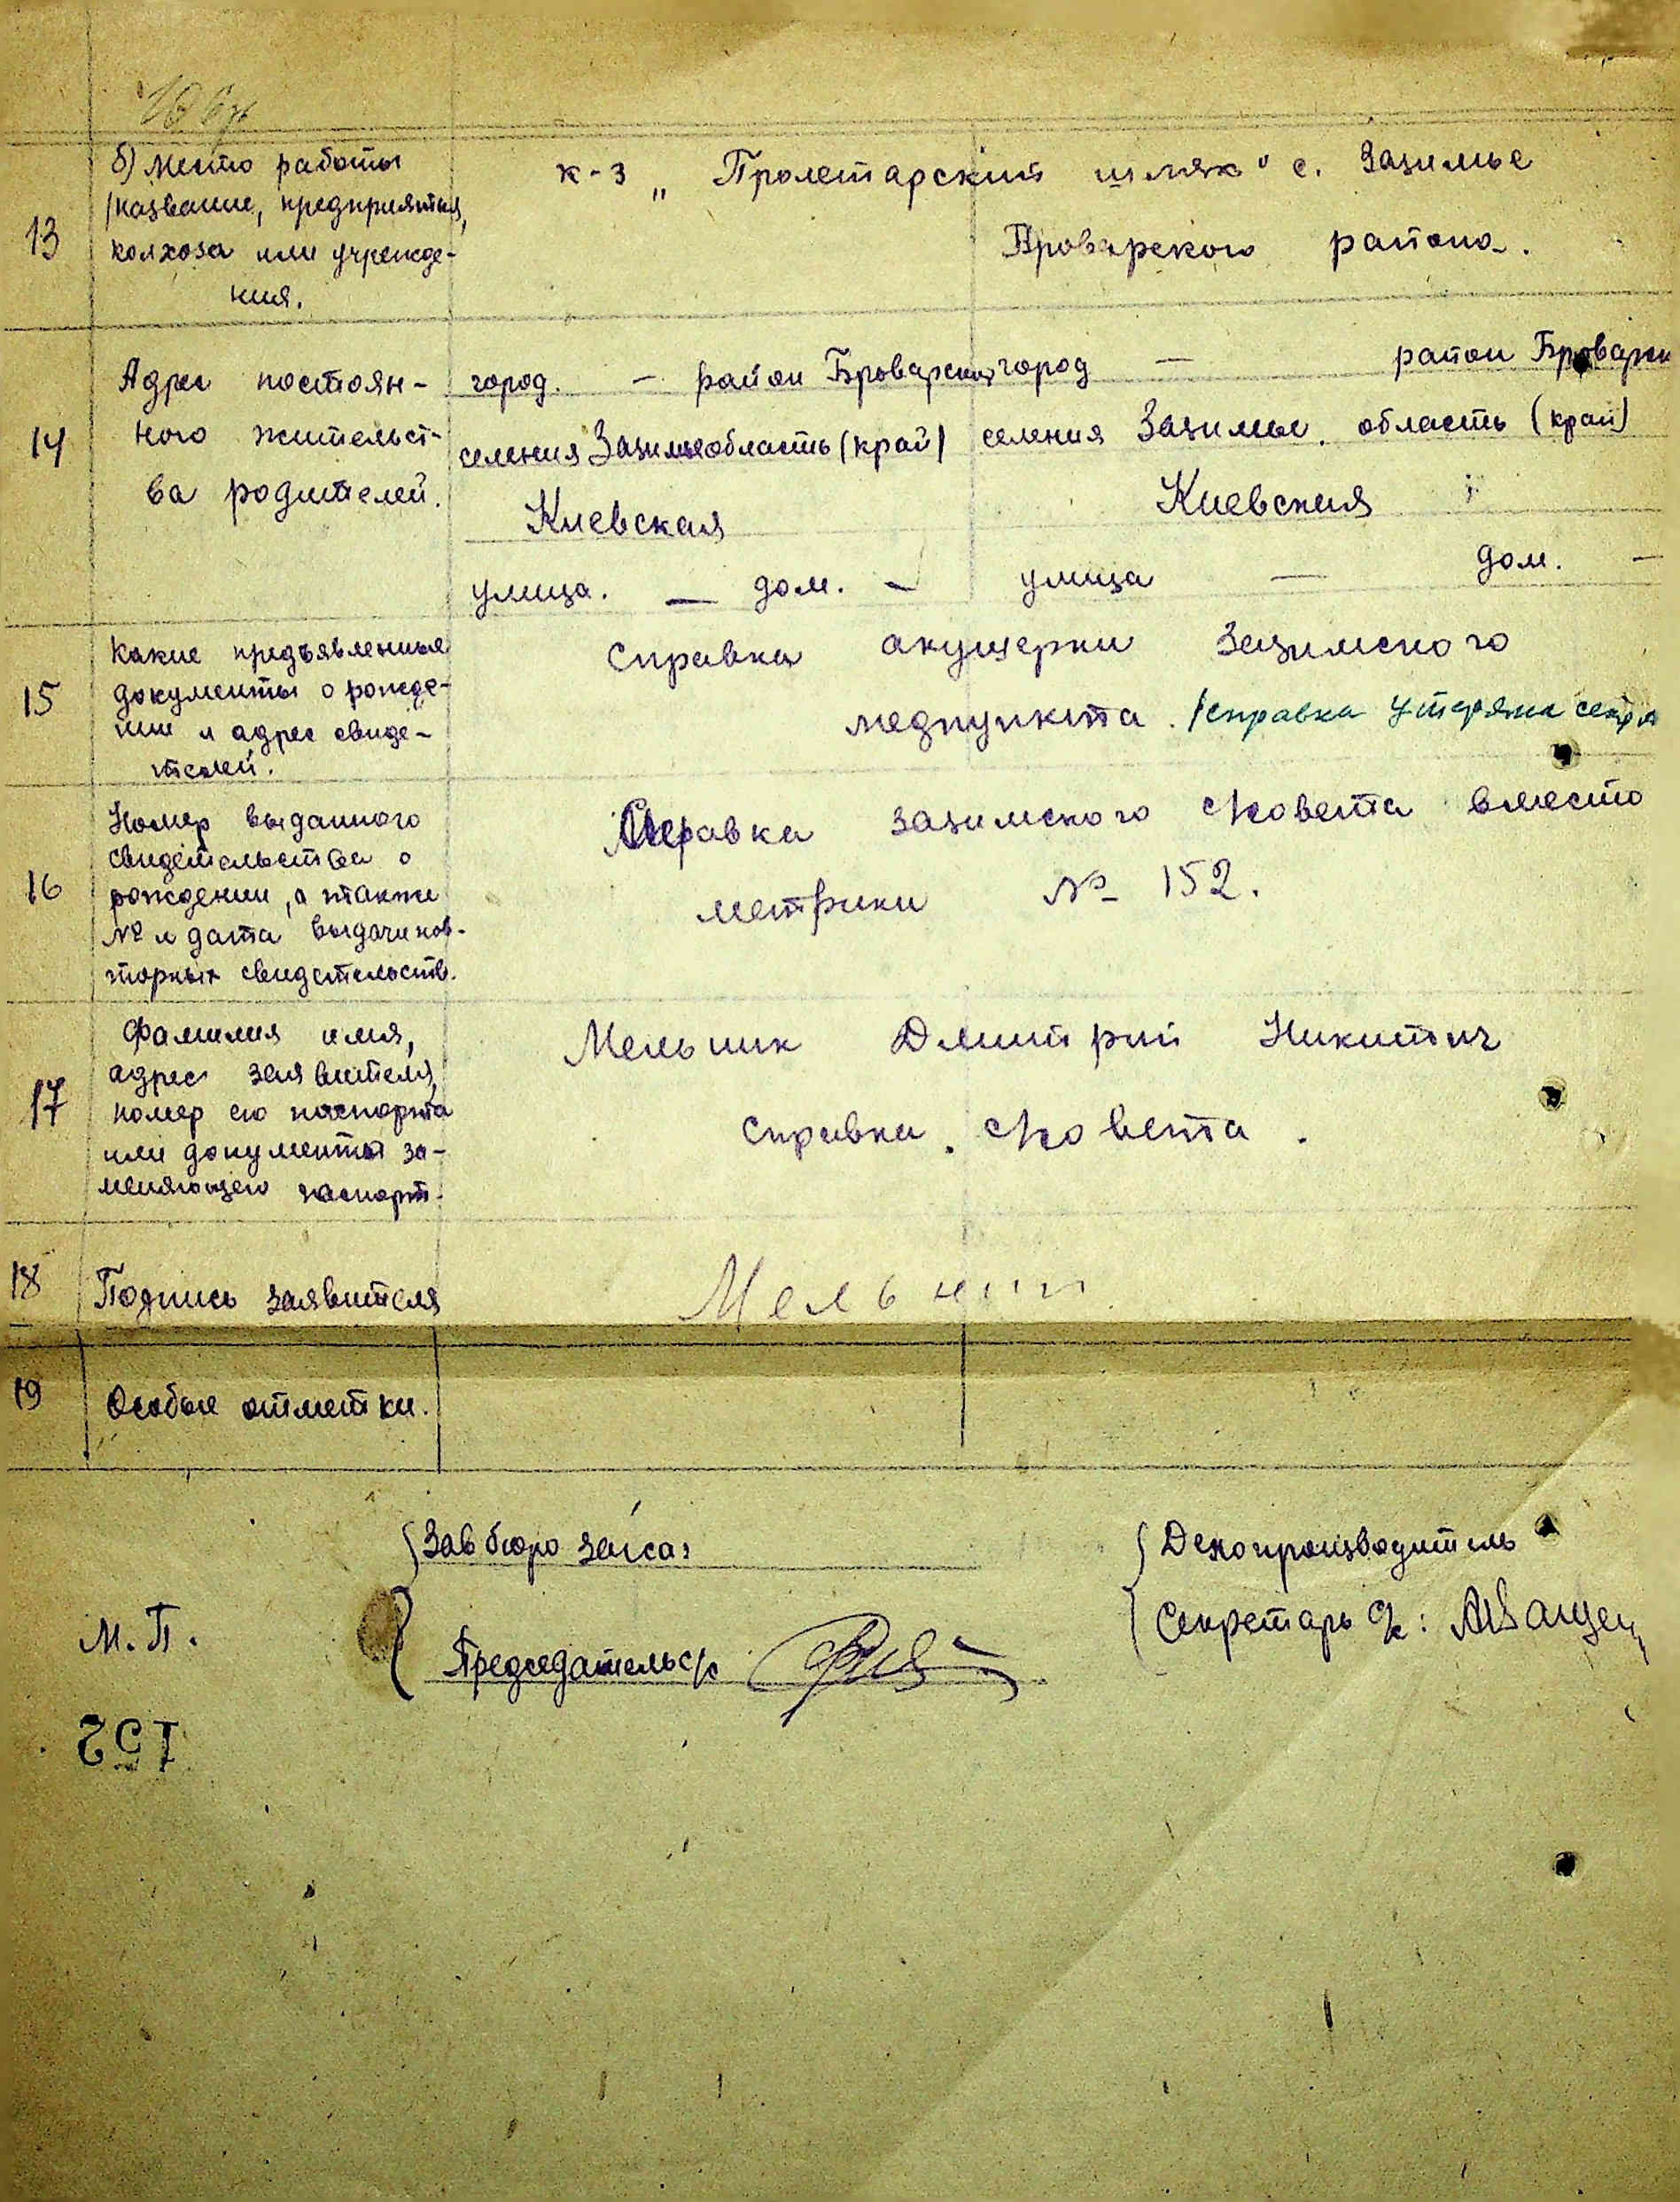 13
б) Место работы
/название, предприятия,
колхоза или учрежде-
ния.
к-з „Пролетарский шлях" с. Зазимье
Броварского района.
14
Адрес постоян-
ного жительст-
ва родителей.
город. — район Броварской
селения Зазимье область (край)
Киевская
улица. — дом. —
город — район Броварск
селения Зазимье. область (край)
Киевская
улица — дом. —
15
Какие предъявленные
документы о рожде-
нии и адрес свиде-
телей.
Справка акушерки Зазимского
медпункта. /справка утеряна
16
Номер выданного
свидетельства о
рождении, а также
№ и дата выдачи пов-
торных свидетельств.
Справка зазимского с/совета вместо
метрики № 152.
17
Фамилия имя,
адрес заявителя,
номер его паспорта
или документа за-
меняющего паспорт.
Мельник Дмитрий Никитич
справка. с/совета.
18
Подпись заявителя
Мельник
19
Особые отметки.
Зав бюро загса:
Делопроизводитель
М. П.
Председатель с/с
Секретарь с/с:
152